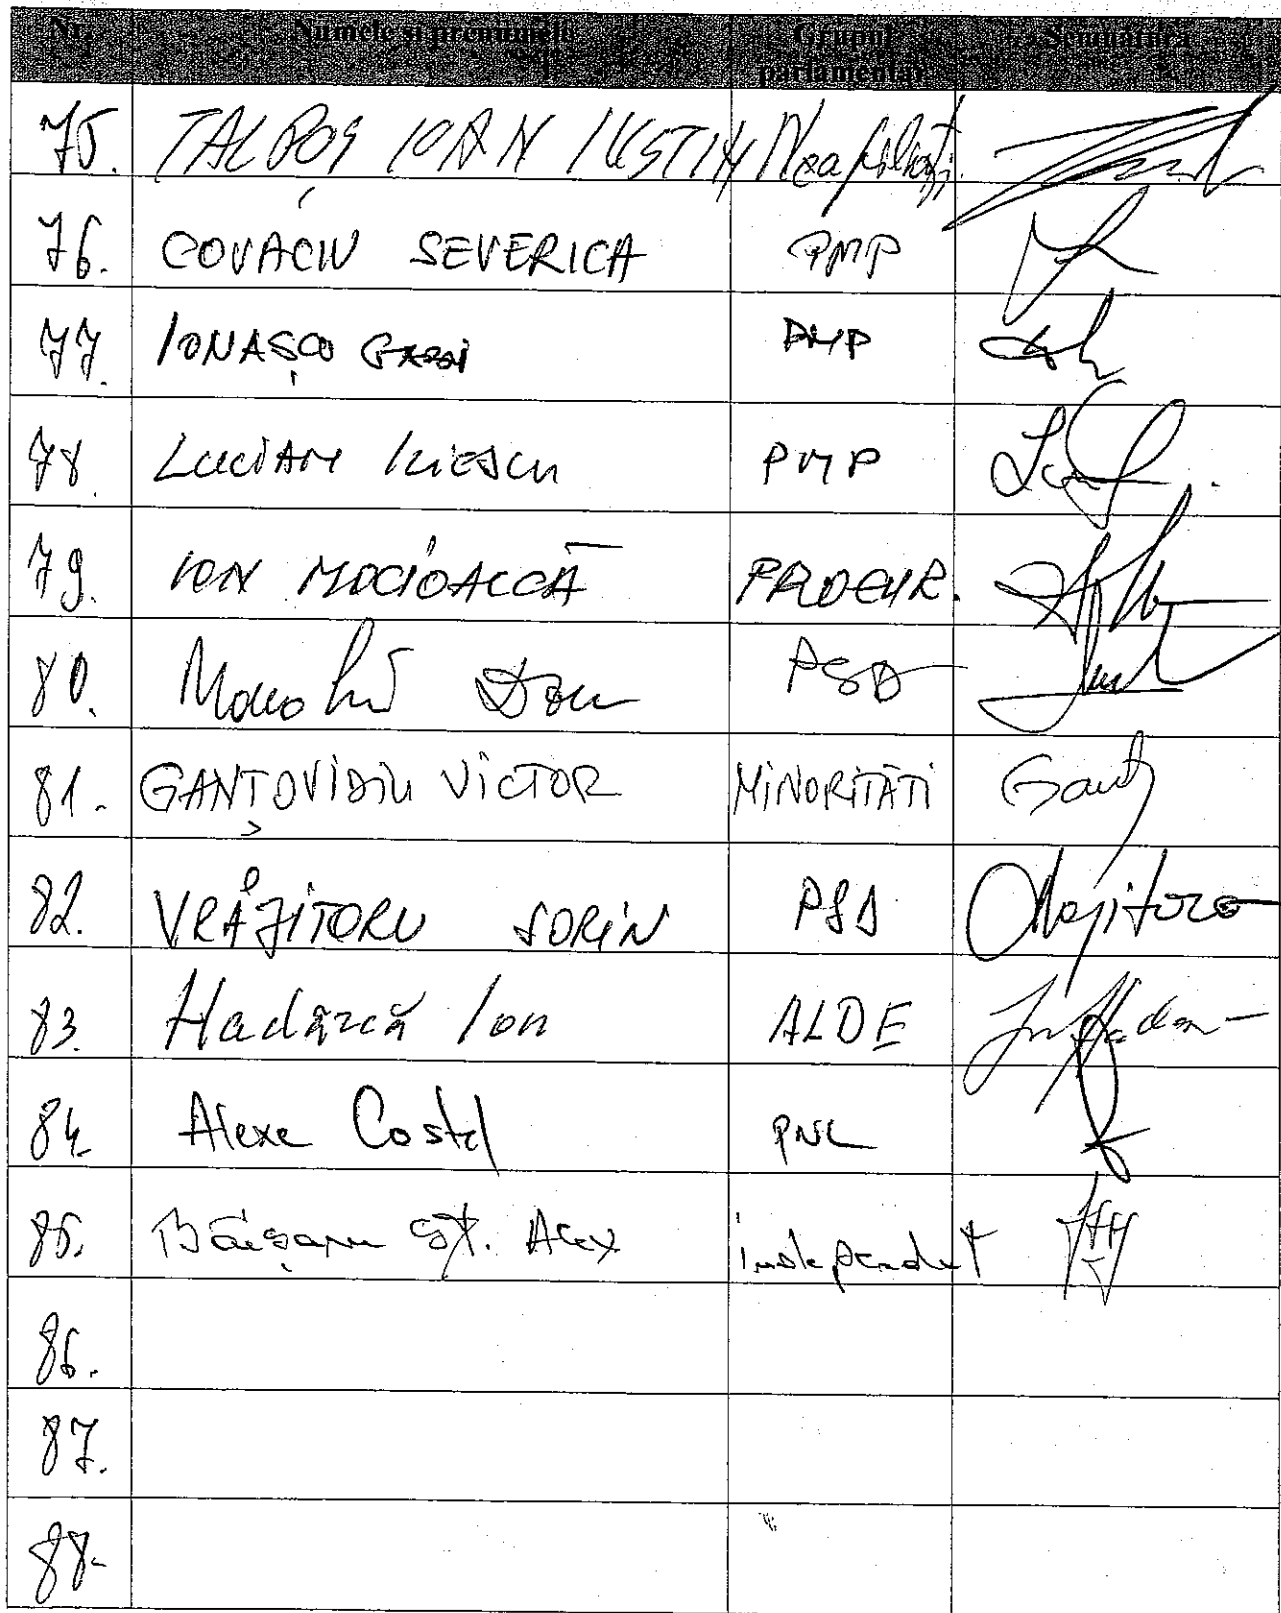 Nr. Numele si prenumele Grupul parlamentar Semnătura
75. TALPOȘ IOAN IUSTIN Neafiliați
76. COVACIU SEVERICA PMP
77. IONAȘCO PMP
78. LUCIAN ILIESCU PMP
79. ION MOCIOALCĂ PRDEMR.
80. Manolii Dan PSD
81. GANȚ OVIDIU VICTOR MINORITĂȚI Gant
82. VRĂJITORU SORIN PSD Vrajitoru
83. Hadârcă Ion ALDE
84. Alexe Costel PNL
85. Băișanu Șt. Alex independent
86.
87.
88.